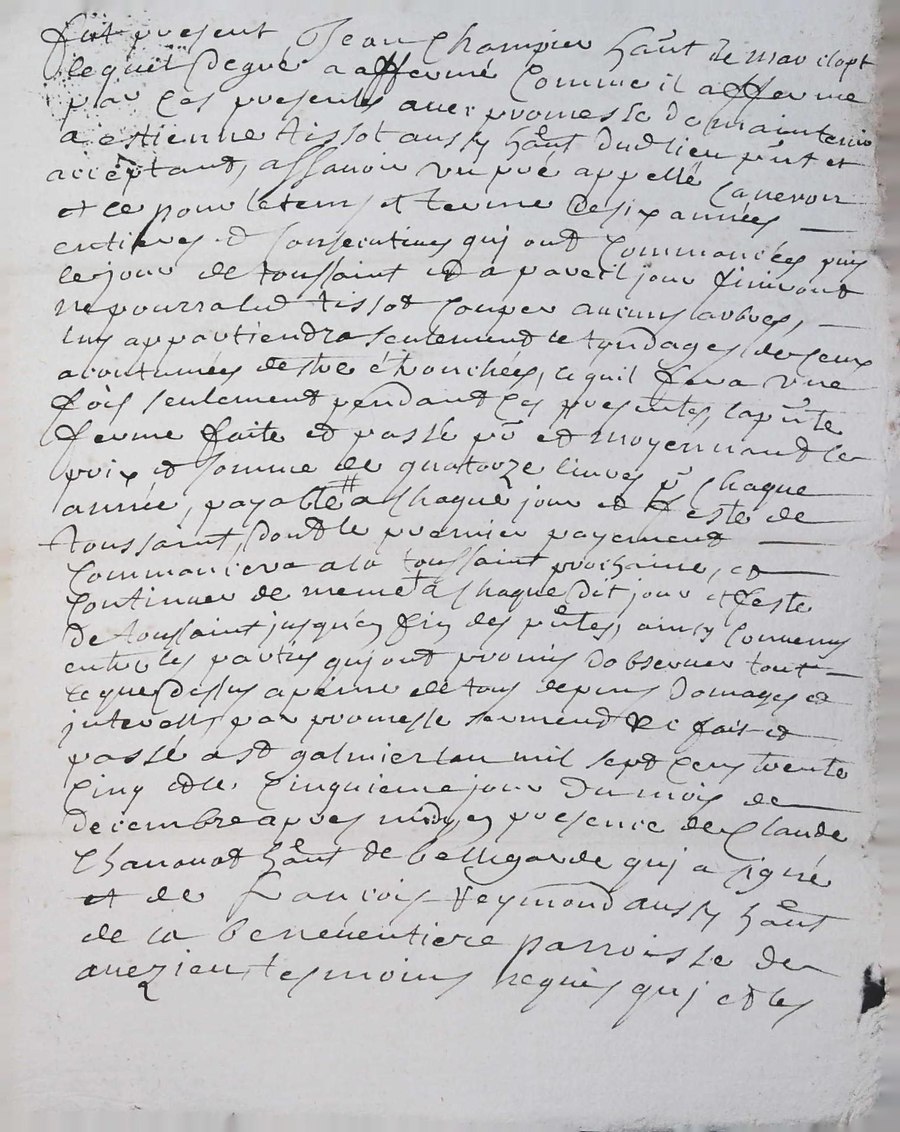 fut present Jean Champier håant de marclopt
lequel de gré a affermé comme il afferme
par ces presentes avec promesse de maintenir
a estienne tissot aussy håant dud lieu pñt et
acceptant, assavoir un pré appellé
et ce pour le tems et terme de six années
entieres et consecutives qui ont commancées puis
le jour de toussaint et a pareil jour finiront
ne pourra led tissot couper aucuns arbres,
luy appartiendra seulement le tondages de ceux
acoutumées destre étronchées, ce quil fera une
fois seulement pendant ces presentes, la pñte
ferme faite et passé pñ et moyennant le
prix et somme de quatorze livres pñ chaque
année, payable a chaque jour et feste de
toussaint, dont le premier payement
commancera a la toussaint prochaine, et
continuer de meme a chaque dit jour et feste
de toussaint jusqu'en fin des pñtes, ainsy convenus
entre les parties qui ont promis dobserver tout
ce que dessus a peine de tous depens domages et
interests par promesse serment &c fait et
passé a st galmier lan mil sept cens trente
cinq et le cinquieme jour du mois de
decembre apres midy, en presence de Claude
håant de bellegarde qui a signé
et de francois Reymond aussy håant
de la benéventiere parroisse de
avezieu, tesmoins requis qui et les